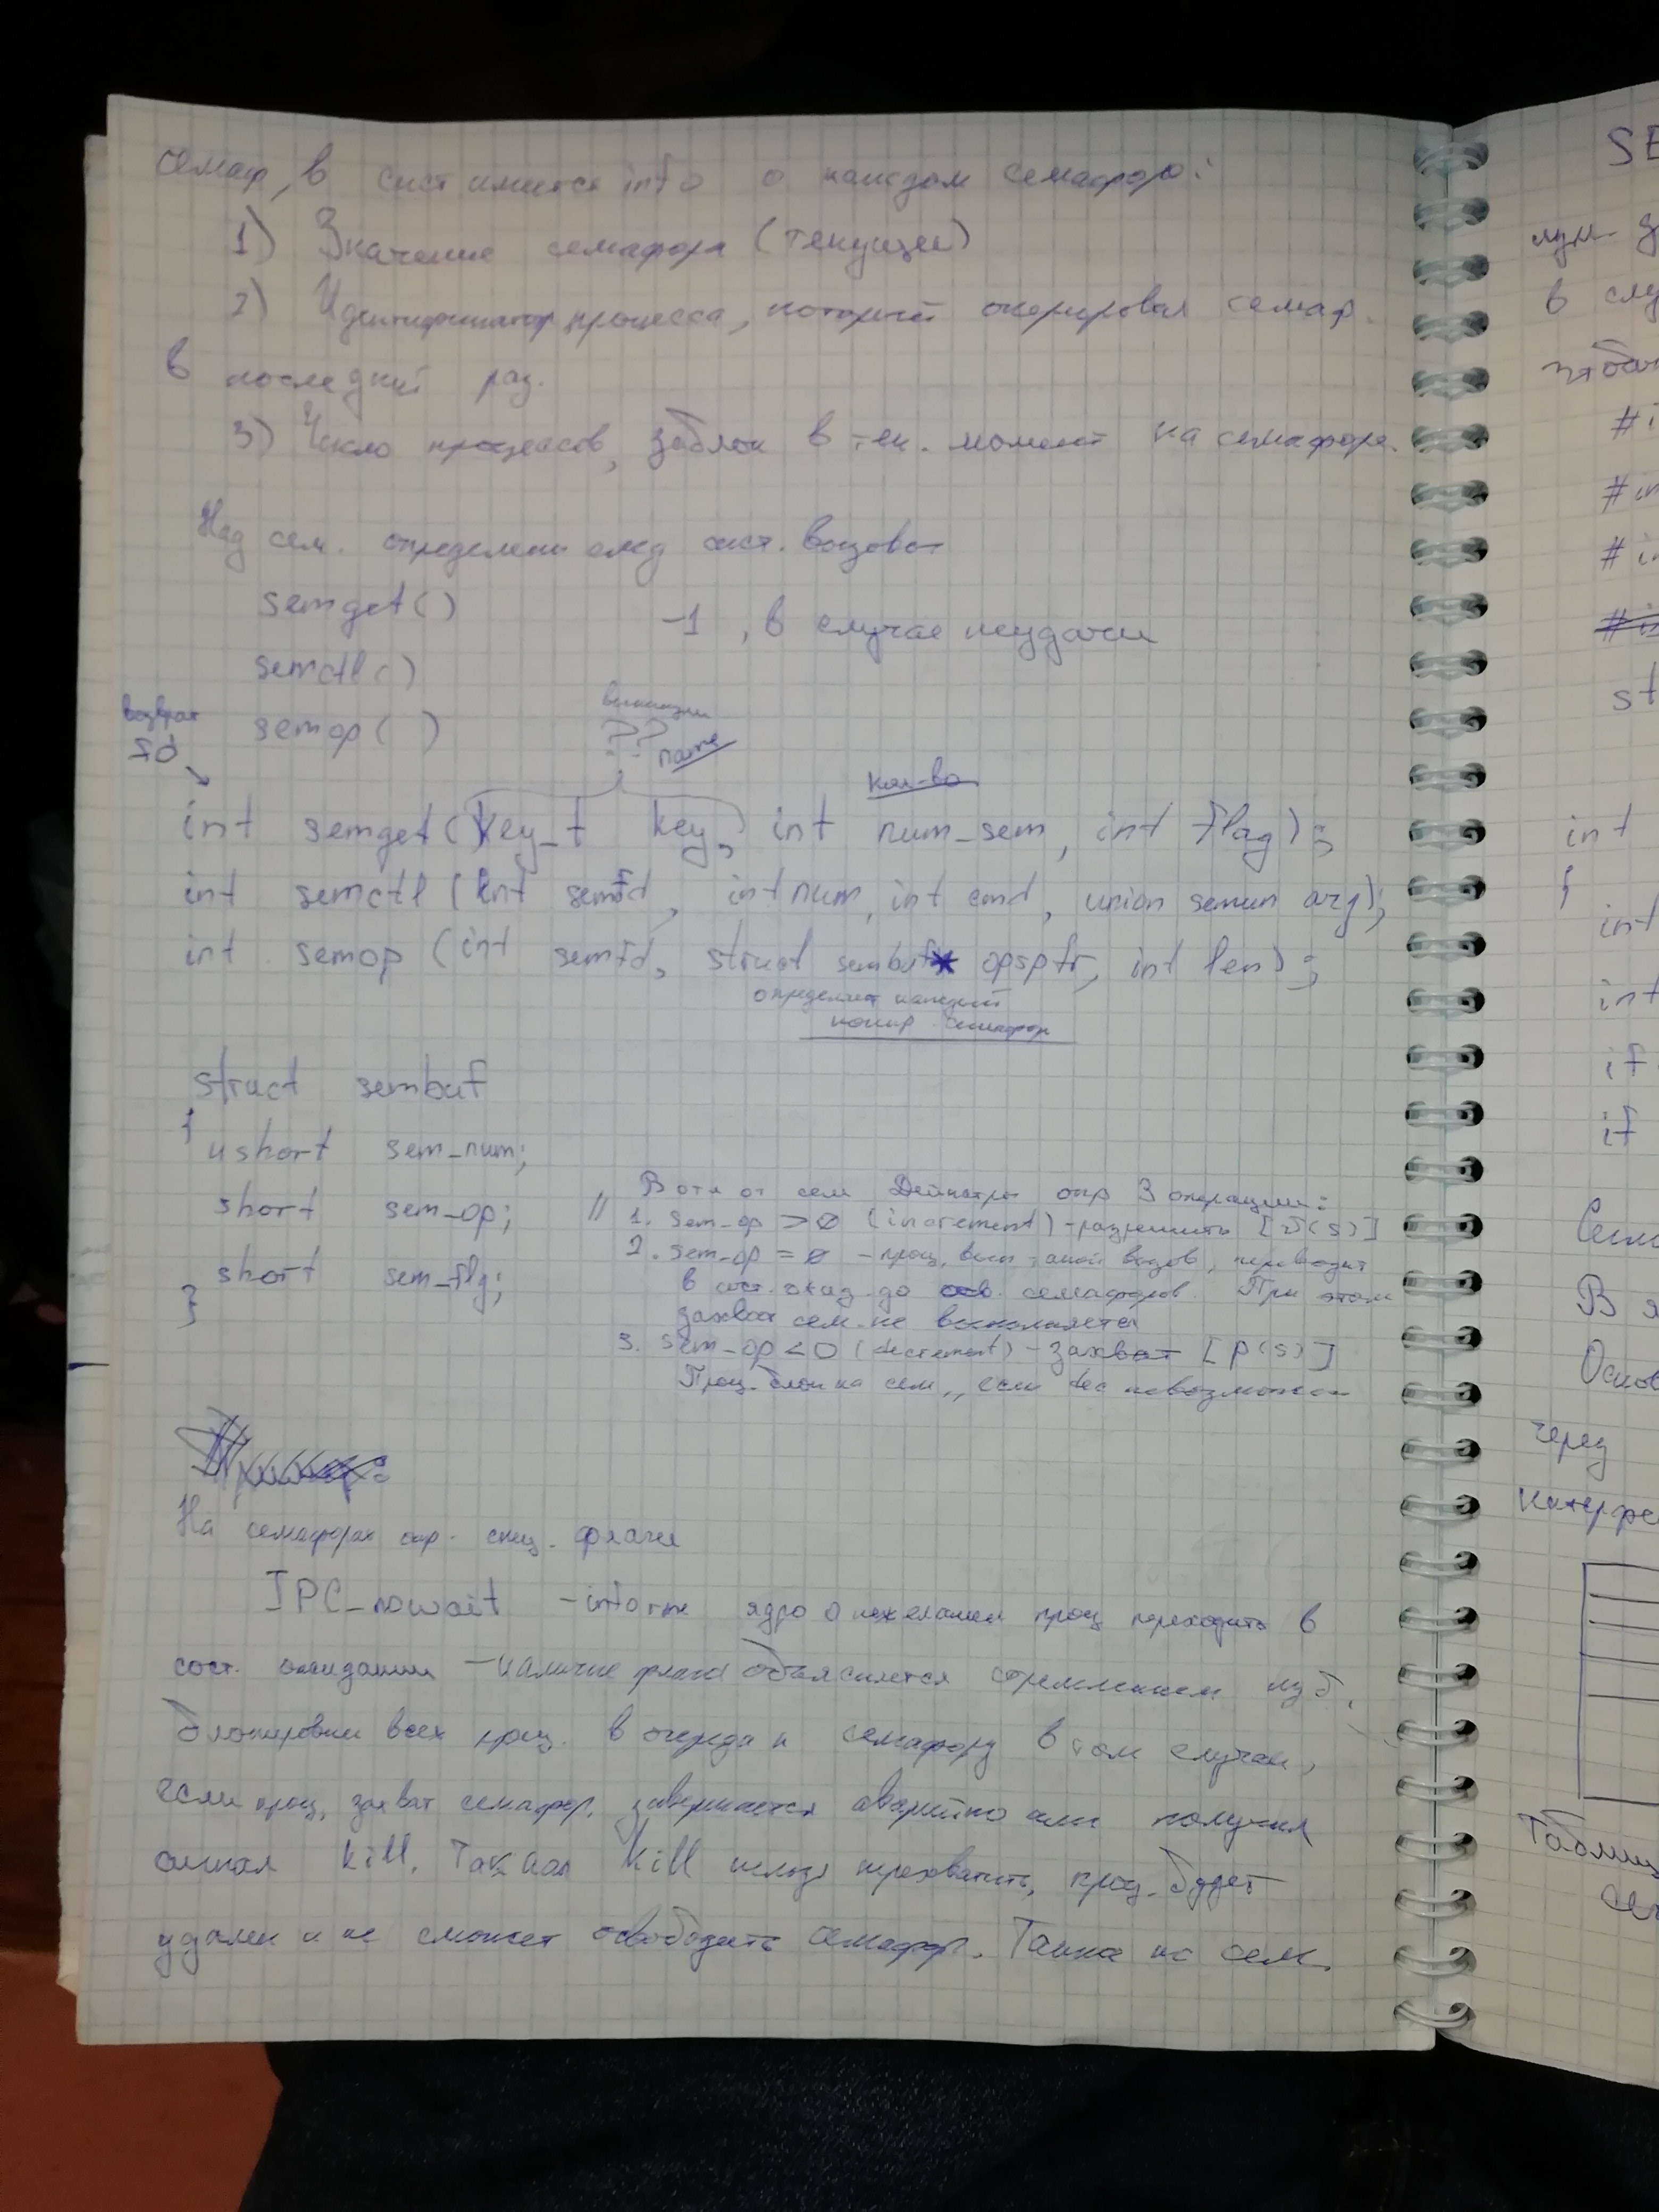 семаф, в сист имеется info о каждом семафоре:
1) Значение семафора (текущее)
2) Идентификатор процесса, который оперировал семаф.
в последний раз.
3) Число процессов, заблок в тек. момент на семафоре.
Над сем. определены след сист. вызовы
semget()
-1, в случае неудачи
semctl()
semop( )
возврат
Id
??
name
кол-во
int semget(key_t key, int num_sem, int flag);
int semctl (int semId, int num, int cmd, union semun arg);
int semop (int semId, struct sembuf* opsptr, int len);
определяет каждый
номер семафора
struct sembuf
{
ushort sem_num;
short sem_op;
short sem_flg;
}
// В отл от сем Дейкстры опр 3 операции:
1. sem_op > 0 (increment) - разрешить [V(s)]
2. sem_op = 0 - проц, вып такой вызов, переводит
в сост. ожид. до осв. семафоров. При этом
захват сем. не выполняется
3. sem_op < 0 (decrement) - захват [P(s)]
Проц. блок на сем, если dec невозможен
На семафорах опр. спец. флаги
IPC_nowait - inform ядро о нежелании проц переходить в
сост. ожидания - наличие флага объясняется стремлением изб.
блокировки всех проц. в очереди к семафору в том случае,
если проц, захват семафор, завершается аварийно или получил
сигнал kill. Так как kill нельзя перехватить, проц. будет
удален и не сможет освободить семафор. Также на сем.
SE
в слу
int
{
int
int
if
if
Осно
через
интерфе
Таблиц